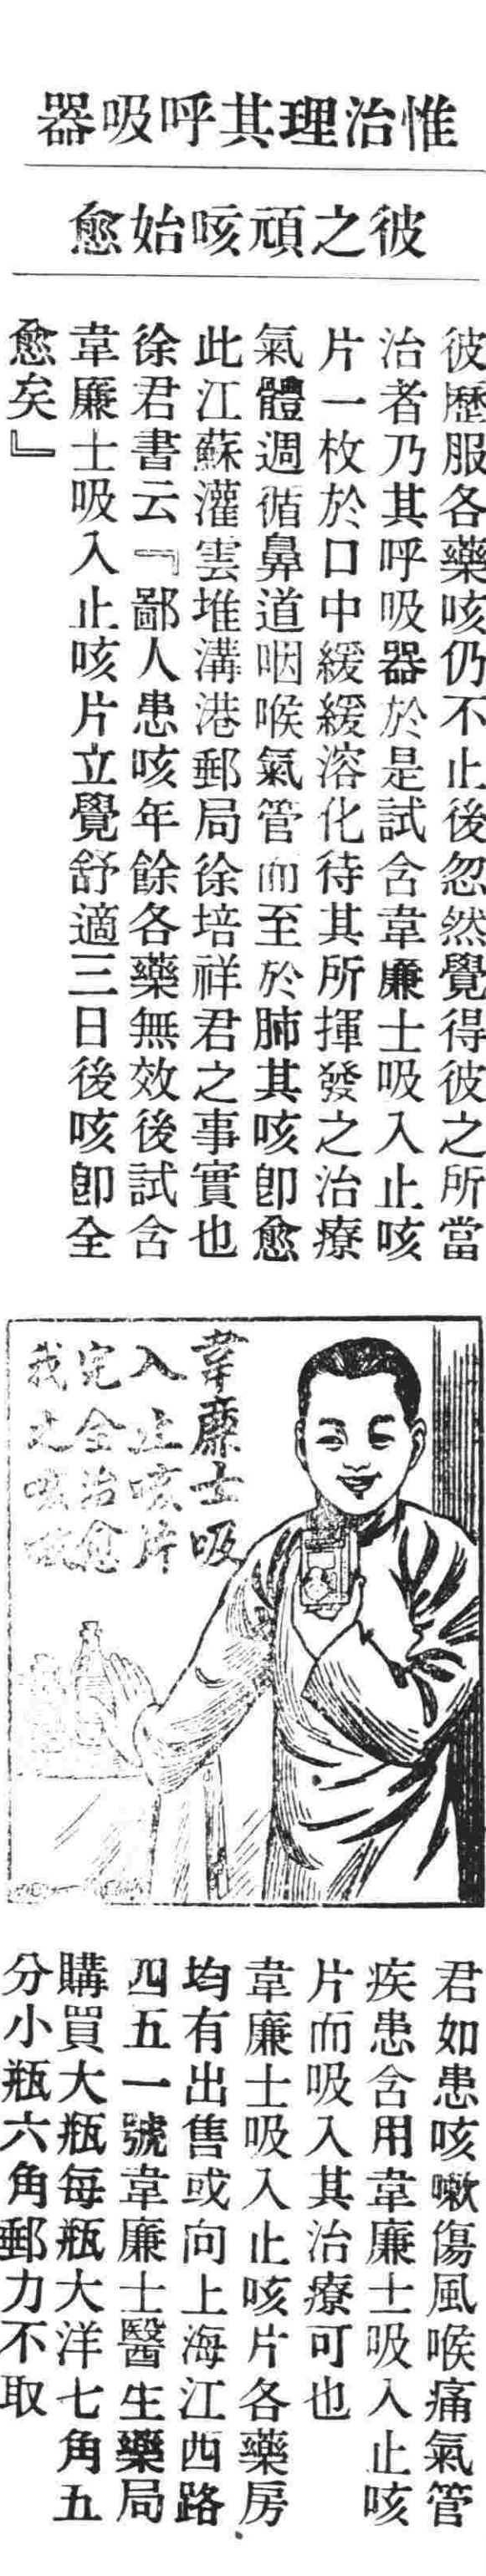 惟治理其呼吸器
彼之頑咳始愈
彼歷服各藥咳仍不止後忽然覺得彼之所當
治者乃其呼吸器於是試含韋廉士吸入止咳
片一枚於口中緩緩溶化待其所揮發之治療
氣體週循鼻道咽喉氣管而至於肺其咳卽愈
此江蘇灌雲堆溝港郵局徐培祥君之事實也
徐君書云『鄙人患咳年餘各藥無效後試含
韋廉士吸入止咳片立覺舒適三日後咳卽全
愈矣』
韋廉士吸
入止咳片
完全治愈
我之咳嗽
君如患咳嗽傷風喉痛氣管
疾患含用韋廉士吸入止咳
片而吸入其治療可也
韋廉士吸入止咳片各藥房
均有出售或向上海江西路
四五一號韋廉士醫生藥局
購買大瓶每瓶大洋七角五
分小瓶六角郵力不取